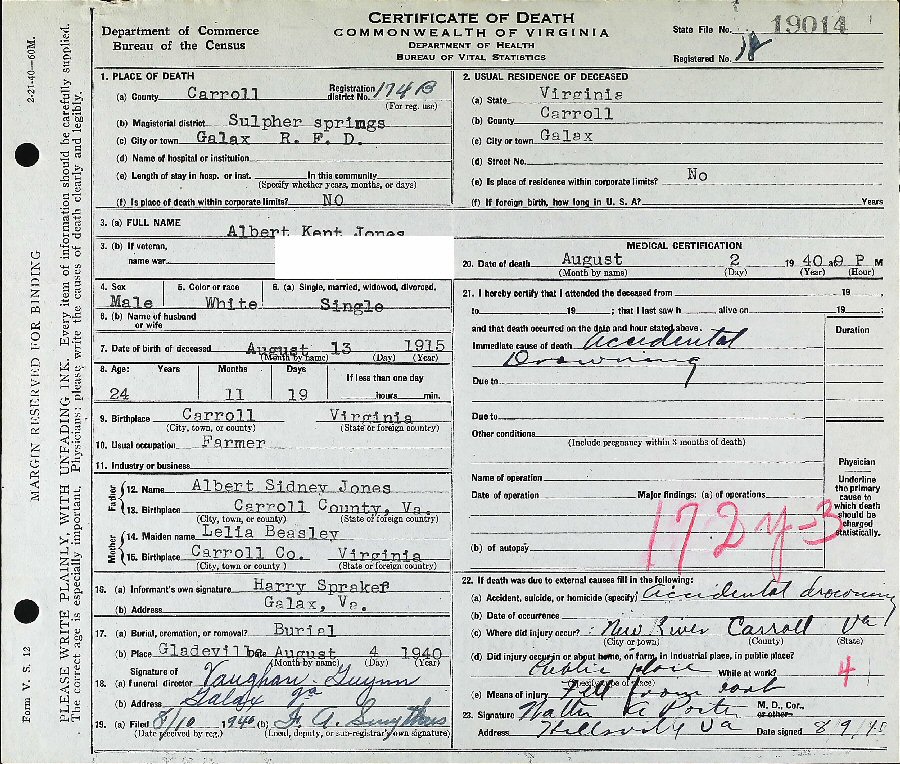 CERTIFICATE OF DEATH
COMMONWEALTH OF VIRGINIA
DEPARTMENT OF HEALTH
BUREAU OF VITAL STATISTICS
Department of Commerce
Bureau of the Census
State File No. 19014
Registered No. 18
2-21-40—60M.
MARGIN RESERVED FOR BINDING
Form V. S. 12
PLEASE WRITE PLAINLY, WITH UNFADING INK. Every item of information should be carefully supplied.
The correct age is especially important. Physicians: please write the causes of death clearly and legibly.
1. PLACE OF DEATH
(a) County Carroll Registration district No. 174B
(For reg. use)
(b) Magisterial district Sulpher springs
(c) City or town Galax R. F. D.
(d) Name of hospital or institution
(e) Length of stay in hosp. or inst. In this community
(Specify whether years, months, or days)
(f) Is place of death within corporate limits? NO
2. USUAL RESIDENCE OF DECEASED
(a) State Virginia
(b) County Carroll
(c) City or town Galax
(d) Street No.
(e) Is place of residence within corporate limits? No
(f) If foreign birth, how long in U. S. A.? Years
3. (a) FULL NAME Albert Kent Jones
3. (b) If veteran,
name war
4. Sex Male
5. Color or race White
6. (a) Single, married, widowed, divorced. Single
6. (b) Name of husband
or wife
7. Date of birth of deceased August 13 1915
(Month by name) (Day) (Year)
8. Age: Years Months Days If less than one day
24 11 19 hours min.
9. Birthplace Carroll Virginia
(City, town, or county) (State or foreign country)
10. Usual occupation Farmer
11. Industry or business
Father
12. Name Albert Sidney Jones
13. Birthplace Carroll County, Va.
(City, town, or county) (State of foreign country)
Mother
14. Maiden name Lelia Beasley
15. Birthplace Carroll Co. Virginia
(City, town, or county ) (State or foreign country)
16. (a) Informant's own signature Harry Spraker
(b) Address Galax, Va.
17. (a) Burial, cremation, or removal? Burial
(b) Place Gladeville Date August 4 1940
(Month by name) (Day) (Year)
Signature of
18. (a) funeral director Vaughan-Guynn
(b) Address Galax Va
19. (a) Filed 8/10 1940 (b)
(Date received by reg.) (Local, deputy, or sub-registrar's own signature)
MEDICAL CERTIFICATION
20. Date of death August 2 1940 at 9 P M
(Month by name) (Day) (Year) (Hour)
21. I hereby certify that I attended the deceased from 19 ,
to 19 ; that I last saw h alive on 19 ;
and that death occurred on the date and hour stated above.
Duration
Immediate cause of death Accidental
Drowning
Due to
Due to
Other conditions
(Include pregnancy within 3 months of death)
Name of operation
Date of operation Major findings: (a) of operations
(b) of autopsy
Physician
Underline the primary cause to which death should be charged statistically.
172y-3
22. If death was due to external causes fill in the following:
(a) Accident, suicide, or homicide (specify) Accidental drowning
(b) Date of occurrence
(c) Where did injury occur? New River Carroll Va
(City or town) (County) (State)
(d) Did injury occur in or about home, on farm, in industrial place, in public place?
Public place While at work?
(Specify type of place)
4
(e) Means of injury Fell from boat
23. Signature M. D., Cor., or other
Address Hillsville Va Date signed 8/9/40